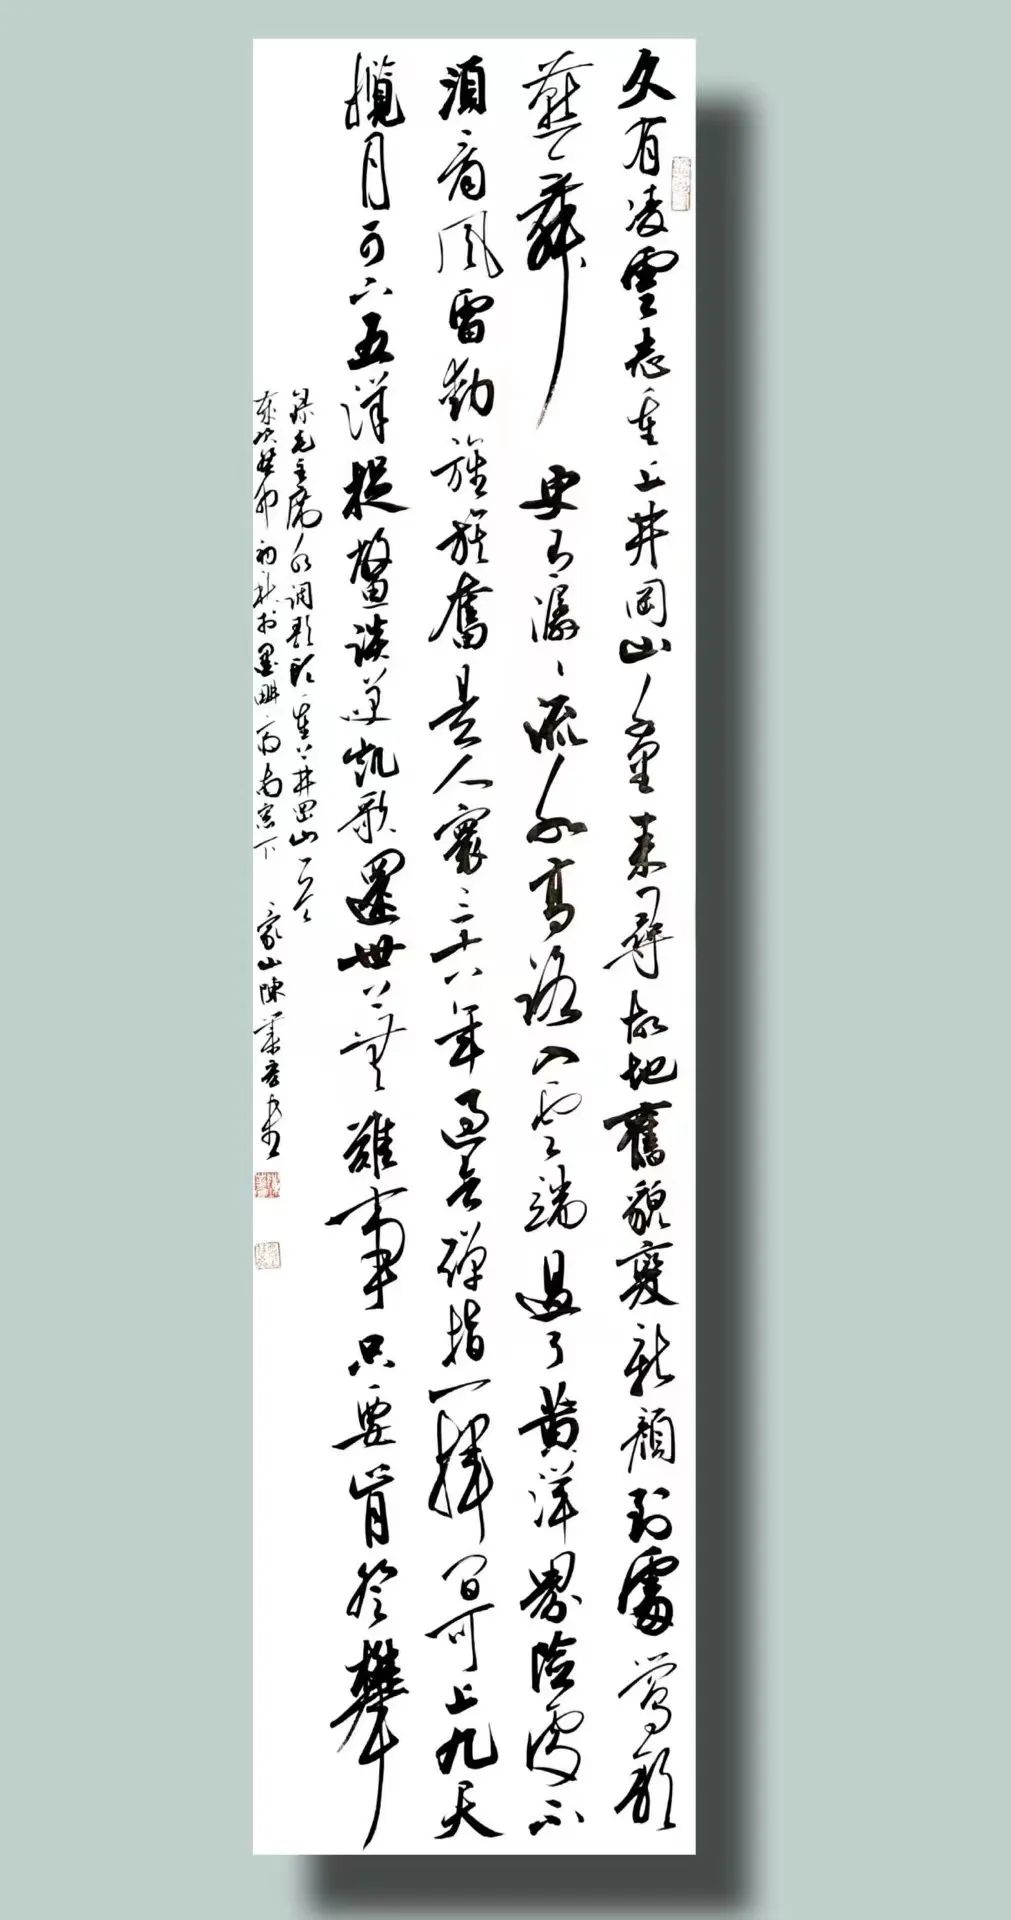 久有凌雲志重上井岡山千里来尋故地舊貌變新顔到處鶯歌
燕舞 更有潺々流水高路入雲端過了黄洋界險處不
須看風雷動旌旗奮是人寰三十八年過去彈指一揮間可上九天
攬月可下五洋捉鱉談笑凱歌還世上無難事只要肯登攀
録毛主席水调歌頭重上井岡山一首
歲次癸卯初秋於墨畊斋南窓下 山陳